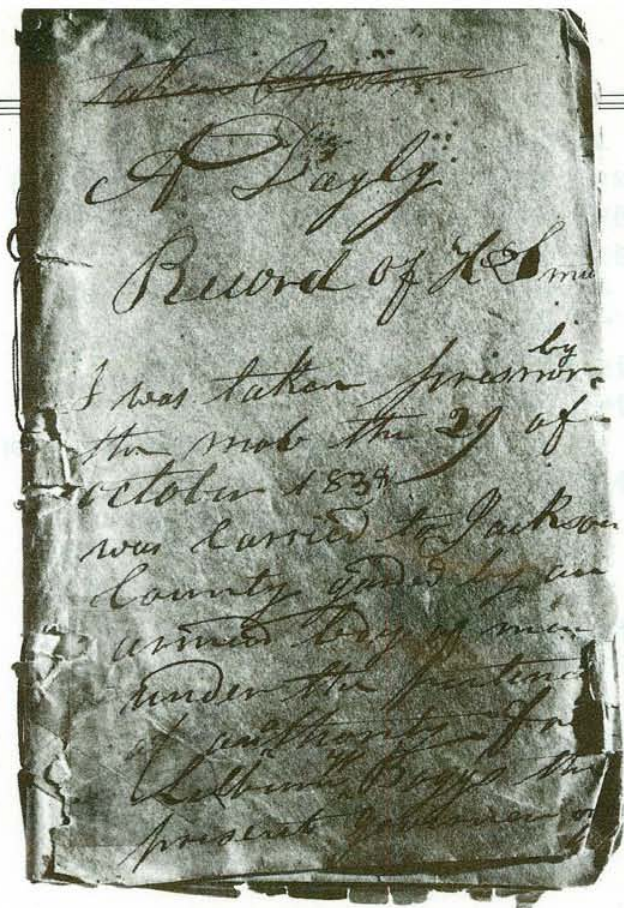 A Dayly
Record of H Smi
I was taken prisinor by
the mob the 29 of
october 1838
was carried to Jackson
County garded by an
armed body of men
under the pretence
of authority fr
Lilburn W Boggs the
present